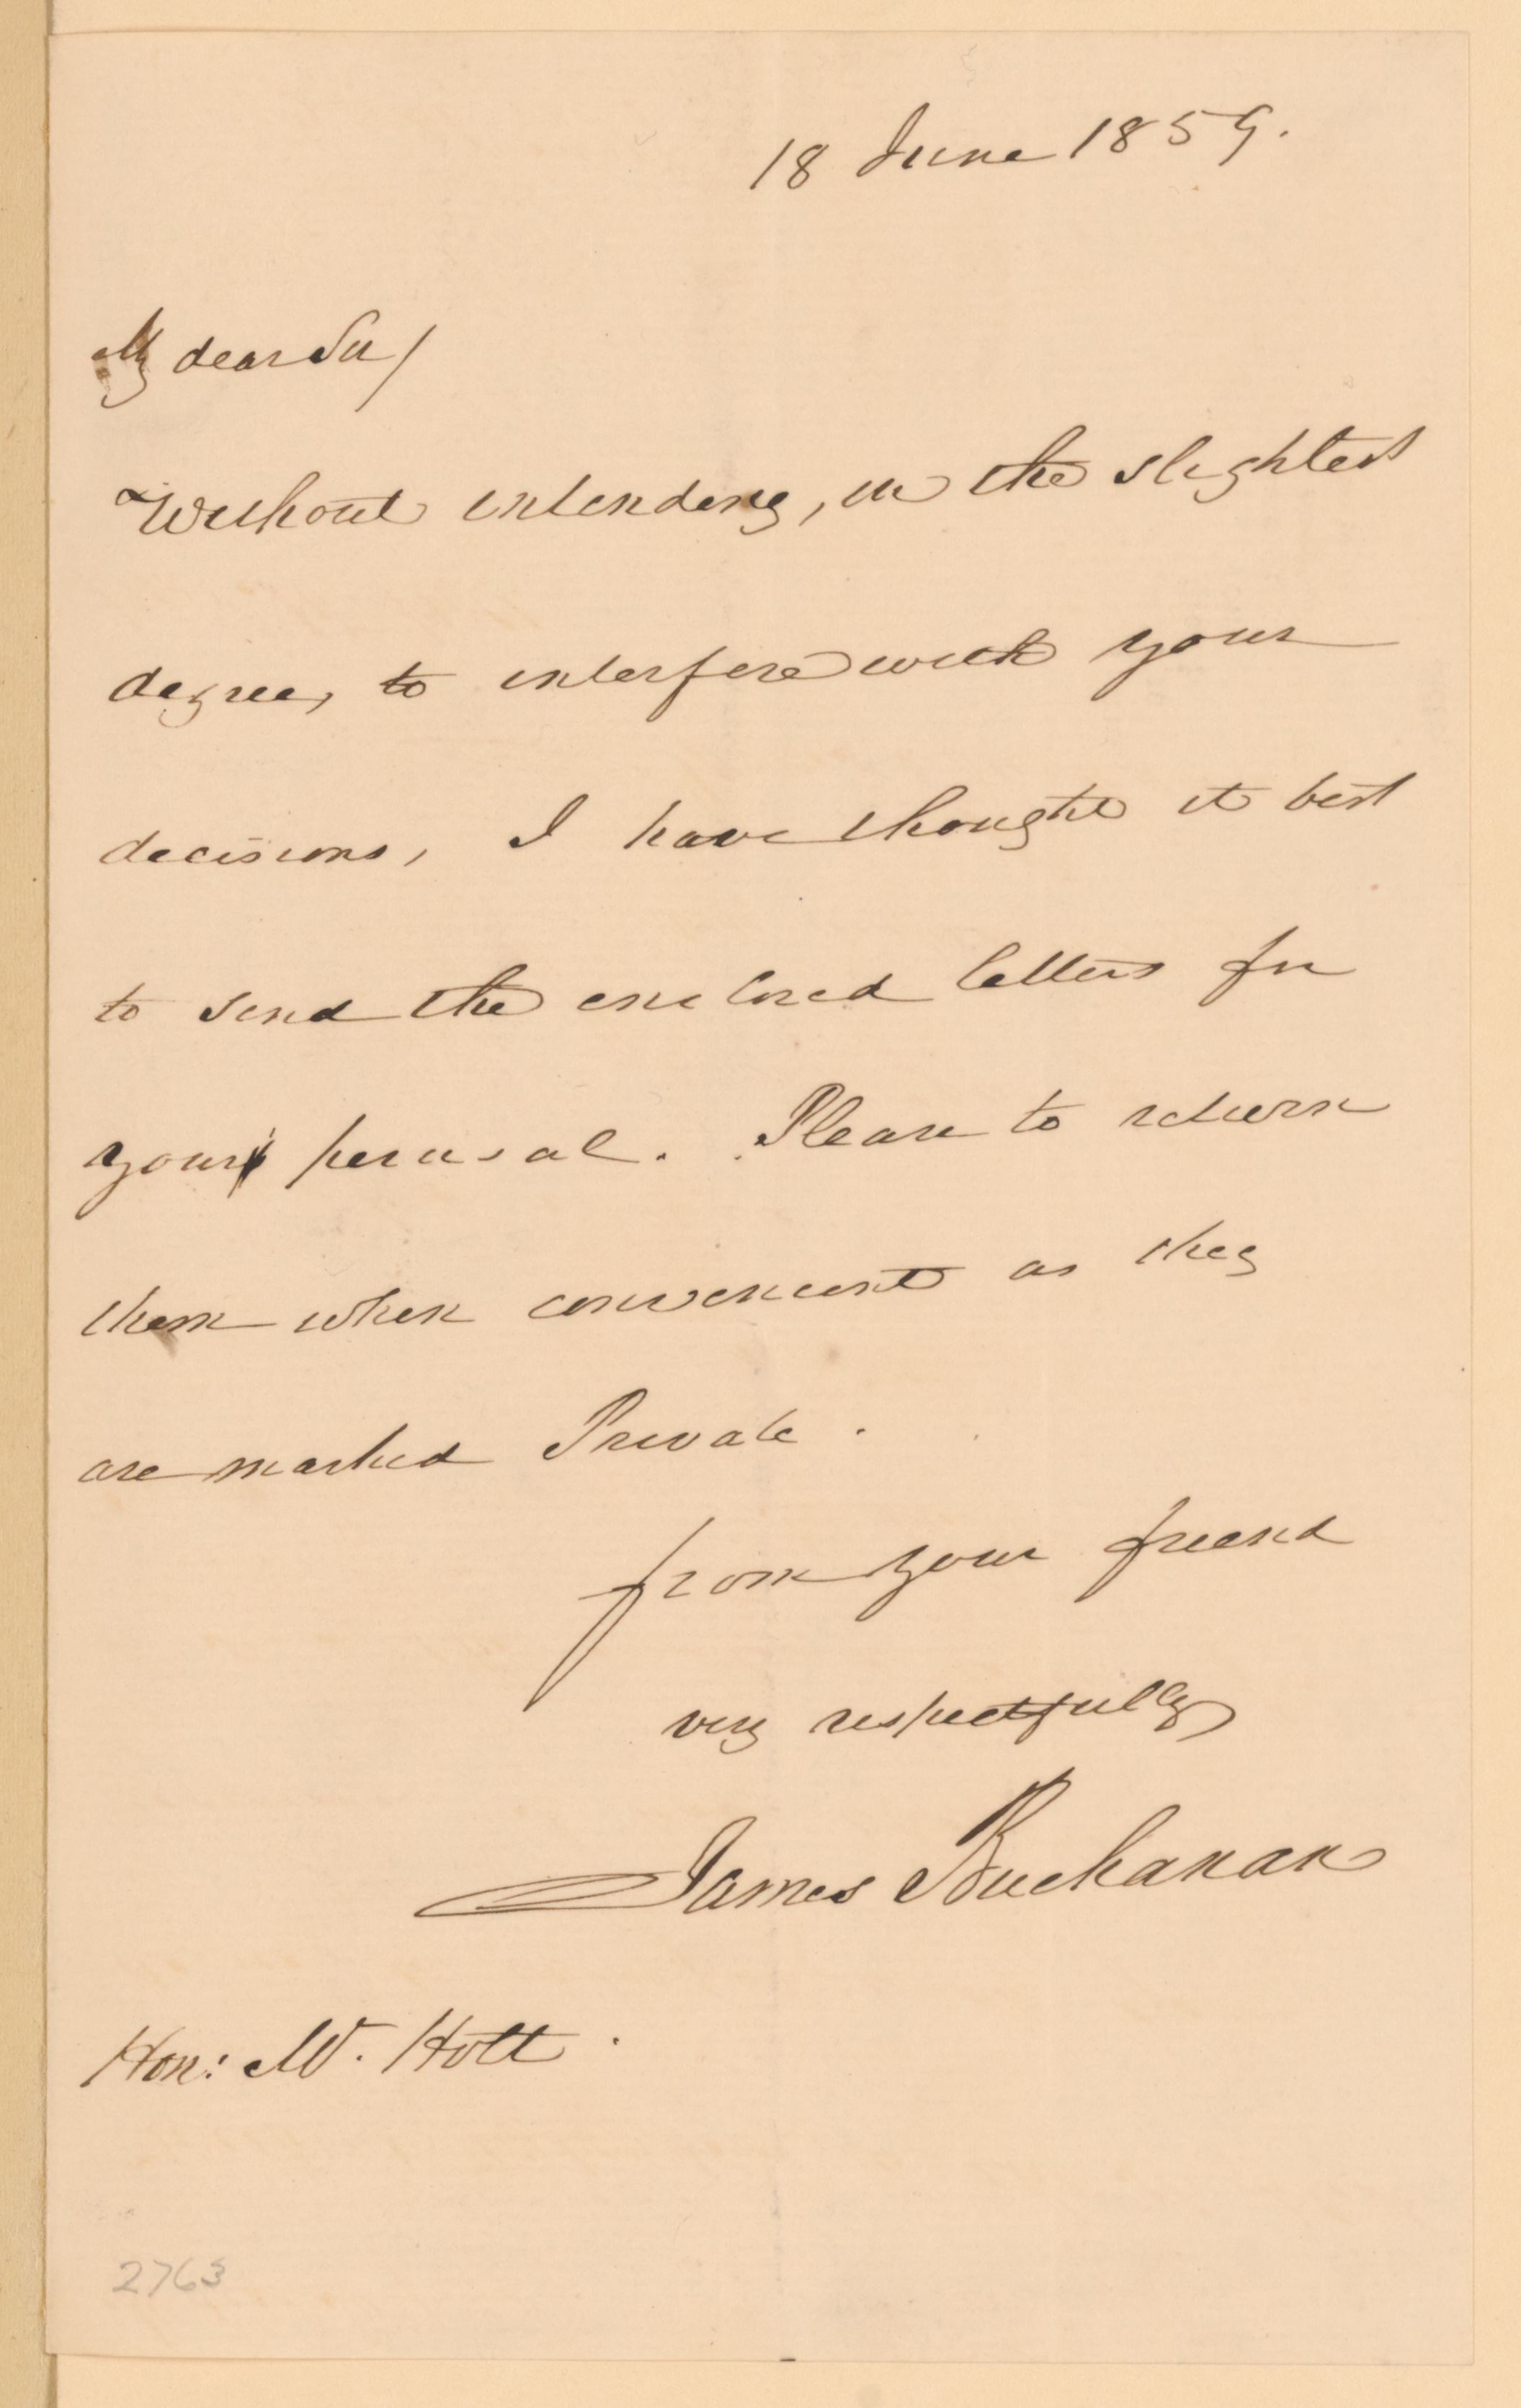 18 June 1859.
My dear Sir/
Without intending, in the slightest
degree, to interfere with your
decisions, I have thought it best
to send the enclosed letters for
your perusal. Please to return
them when convenient as they
are marked Private.
from your friend
very respectfully
James Buchanan
Hon: Mr. Holt.
2763